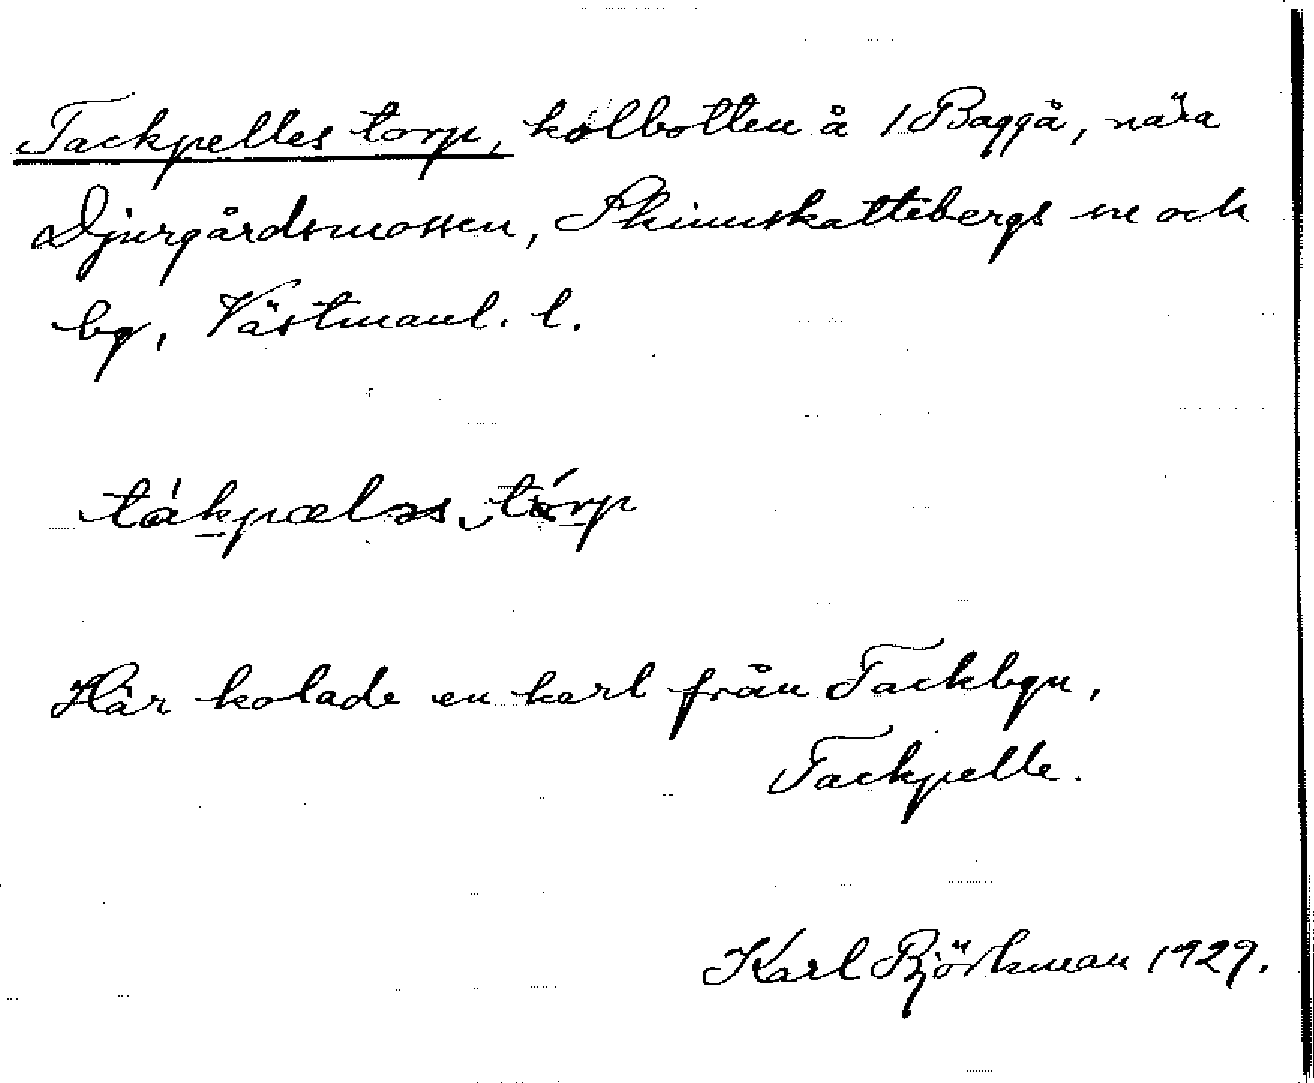 Tackpelles torp, kolbotten å 1 Baggå, nära
Djurgårdsmossen, Skinnskattebergs sn och
bg, Västmanl. l.
tákpæləs tórp
Här kolade en karl från Tackbyn,
Tackpelle.
Karl Björkman 1929.